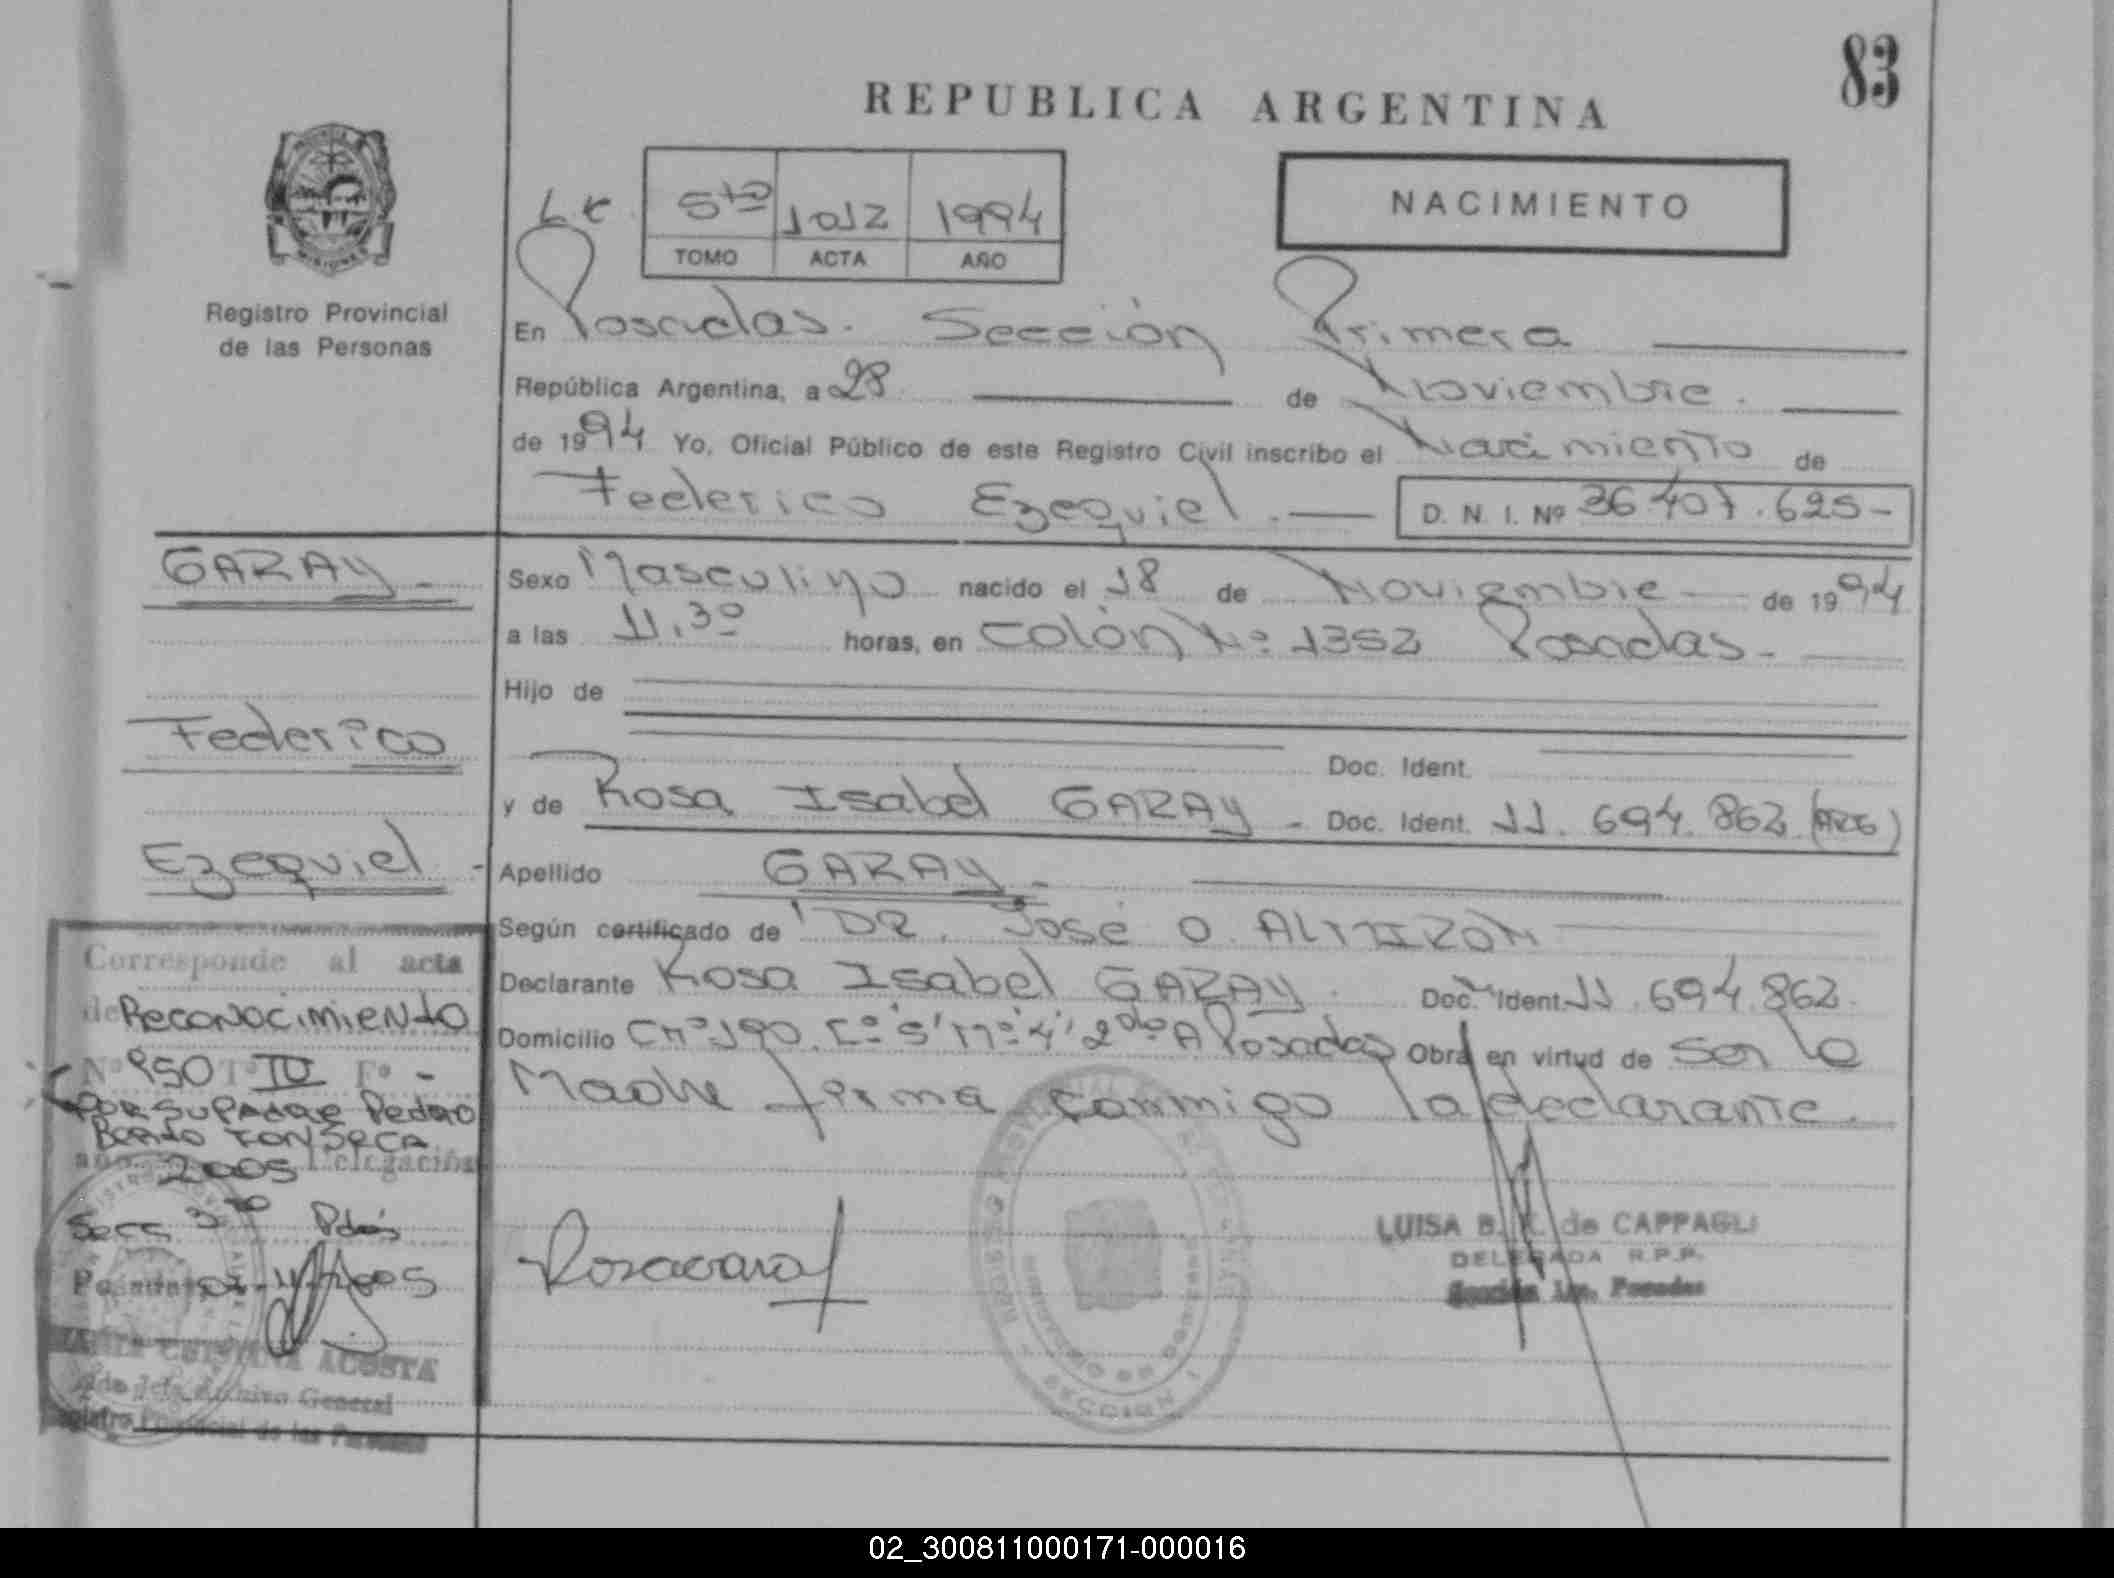 83
REPUBLICA ARGENTINA
NACIMIENTO
5to 1012 1994
TOMO ACTA AÑO
Registro Provincial
de las Personas
En Posadas. Sección Primera
República Argentina, a 28 de Noviembre.
de 1994 Yo, Oficial Público de este Registro Civil inscribo el Nacimiento de
Federico Ezequiel. D. N. I. Nº 36.407.625-
GARAY
Federico
Ezequiel
Sexo Masculino nacido el 18 de Noviembre de 1994
a las 11.30 horas, en Colón Nº 1352 Posadas-
Hijo de
Doc. Ident.
y de Rosa Isabel GARAY - Doc. Ident. 11.694.862 (ARG)
Apellido GARAY-
Según certificado de DR. José O. ALMIRON
Declarante Rosa Isabel GARAY. Doc. Ident. 11.694.862.
Domicilio 190 2do A Posadas Obra en virtud de ser la
Madre firma conmigo la declarante.
Corresponde al acta
de Reconocimiento
Nº 950 Tº IV Fº -
POR SU PADRE Pedro
FONSECA
año 2005 Delegación
Secc. 3ra Pdas
2005
CRISTINA ACOSTA
Archivo General
Registro Provincial de las Personas
LUISA B. de CAPPAGLI
DELEGADA R.P.P.
Sección 1ra. Posadas
SECCION 1
02_300811000171-000016